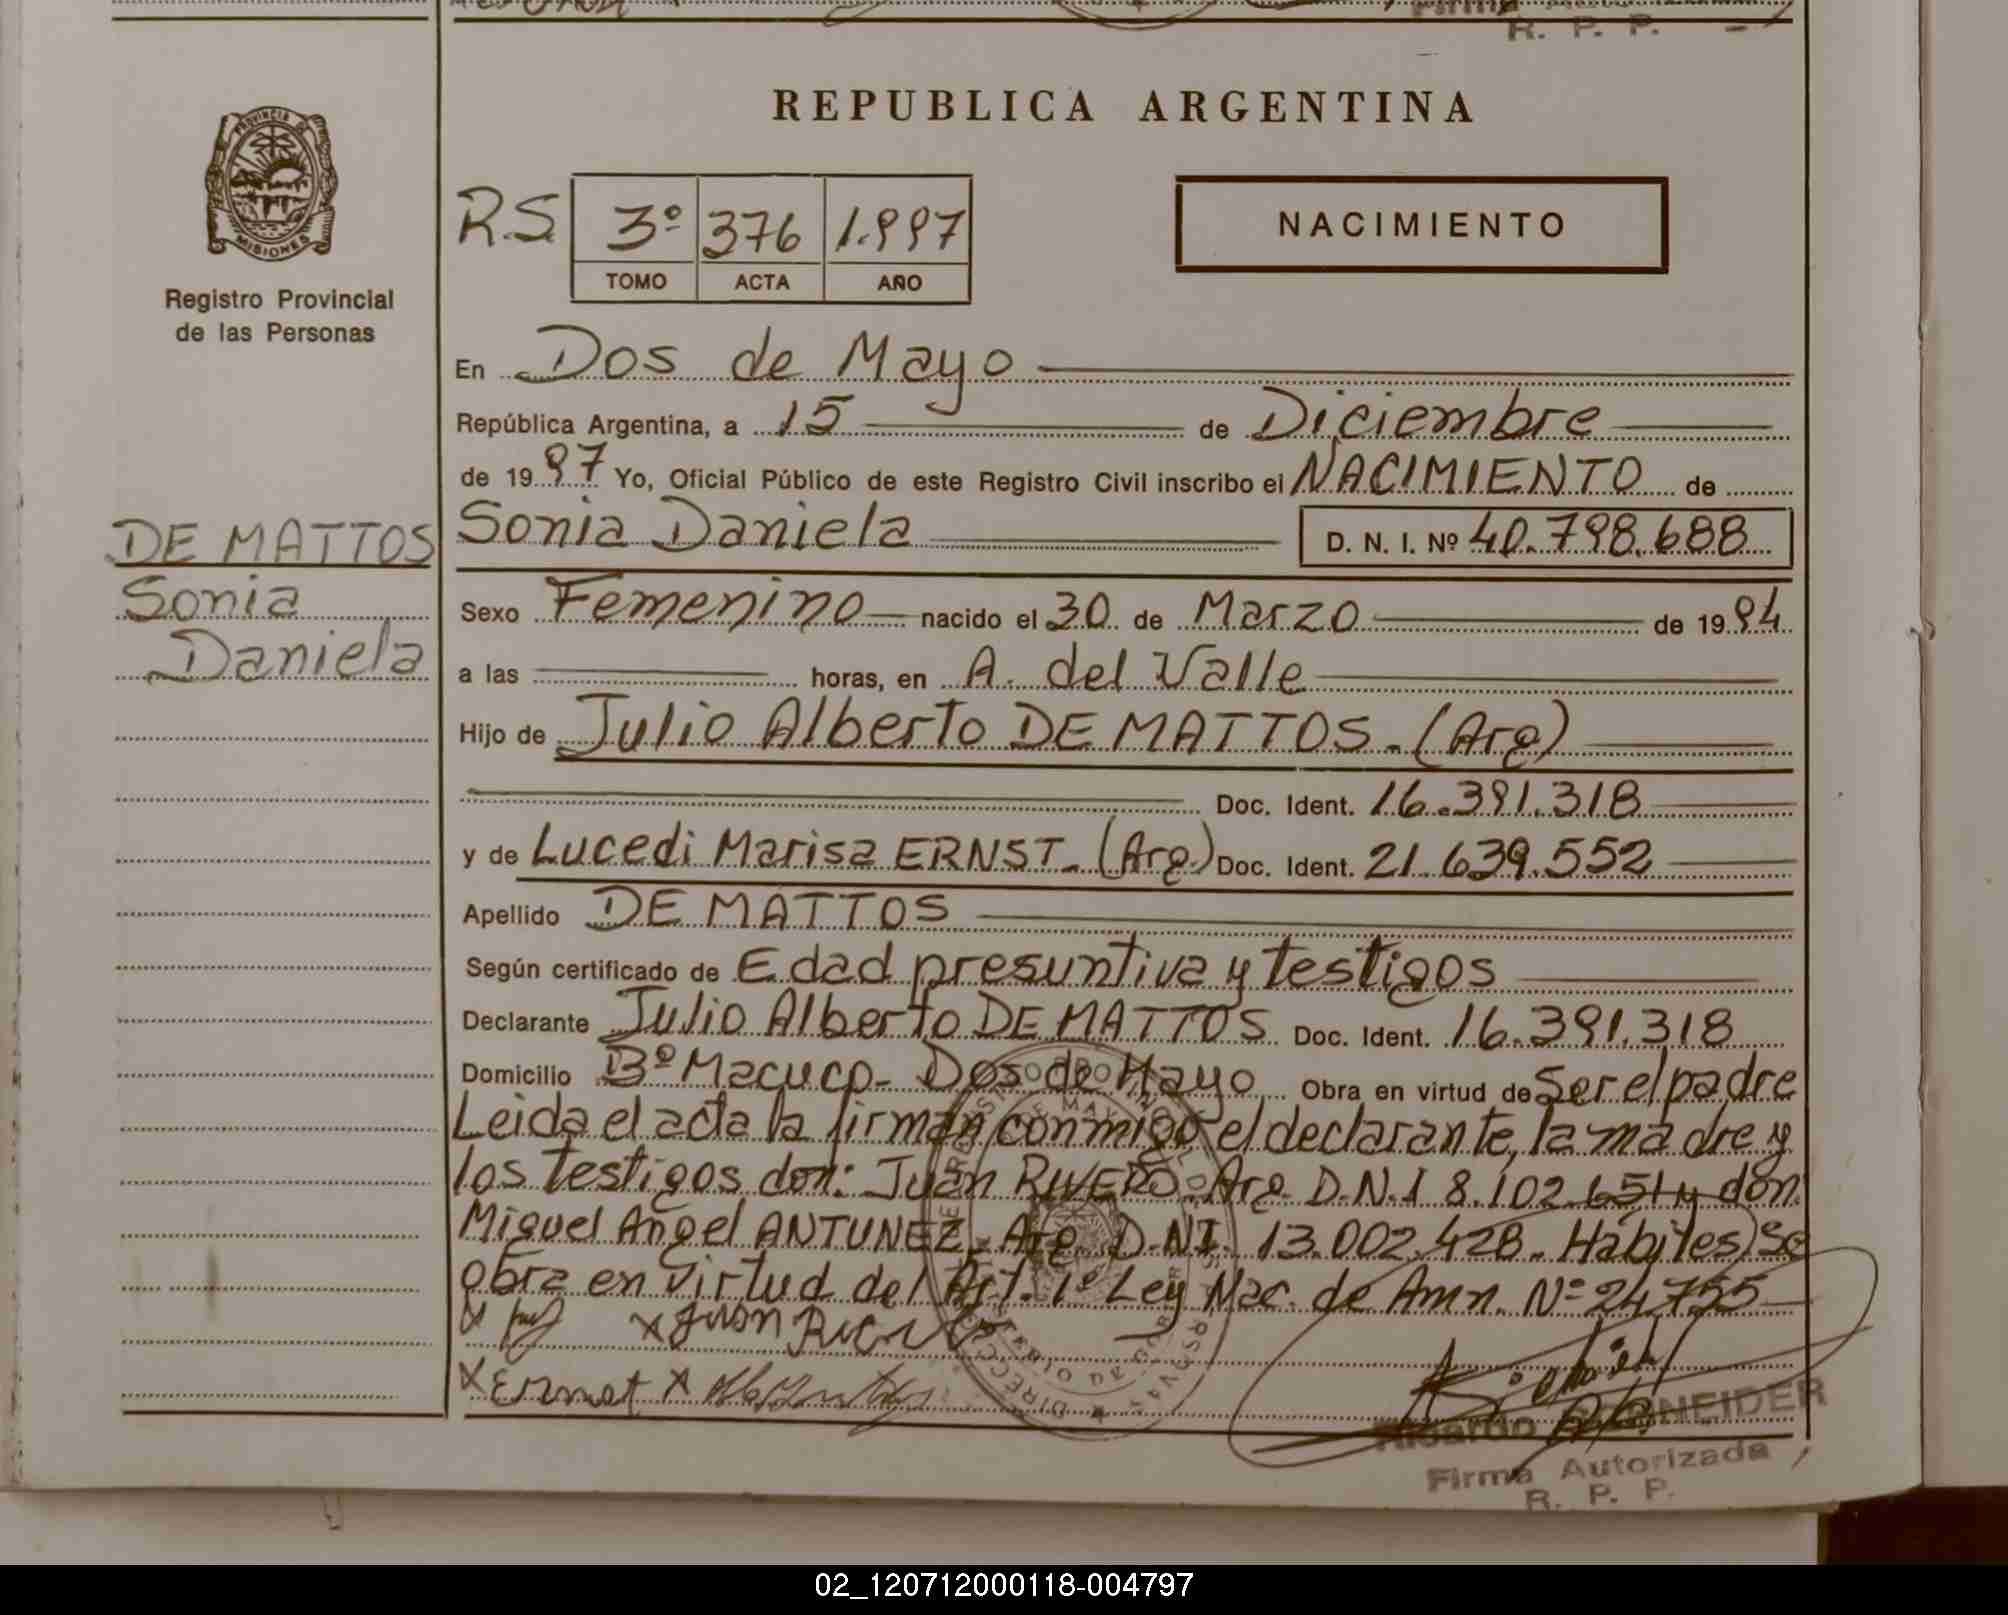 R. P. P.
REPUBLICA ARGENTINA
PROVINCIA DE MISIONES
Registro Provincial
de las Personas
R.S. 3º 376 1.997
TOMO ACTA AÑO
NACIMIENTO
En Dos de Mayo
República Argentina, a 15 de Diciembre
de 1997 Yo, Oficial Público de este Registro Civil inscribo el NACIMIENTO de
DE MATTOS
Sonia
Daniela
Sonia Daniela D. N. I. Nº 40.798.688
Sexo Femenino nacido el 30 de Marzo de 1994
a las horas, en A. del Valle
Hijo de Julio Alberto DE MATTOS. (Arg)
Doc. Ident. 16.391.318
y de Lucedi Marisa ERNST. (Arg.) Doc. Ident. 21.639.552
Apellido DE MATTOS
Según certificado de Edad presuntiva y testigos
Declarante Julio Alberto DE MATTOS Doc. Ident. 16.391.318
Domicilio Bº Macuco - Dos de Mayo Obra en virtud de Ser el padre
Leida el acta la firman conmigo el declarante, la madre y
los testigos don: Juan RIVERO. Arg. D.N.I 8.102.651 y don
Miguel Angel ANTUNEZ. Arg. D.N.I. 13.002.428. Hábiles) Se
obra en virtud del Art. 1º Ley Nac. de Amn. Nº 24.755
x x Juan
x Ernst x
Ricardo SCHNEIDER
Firma Autorizada
R. P. P.
02_120712000118-004797